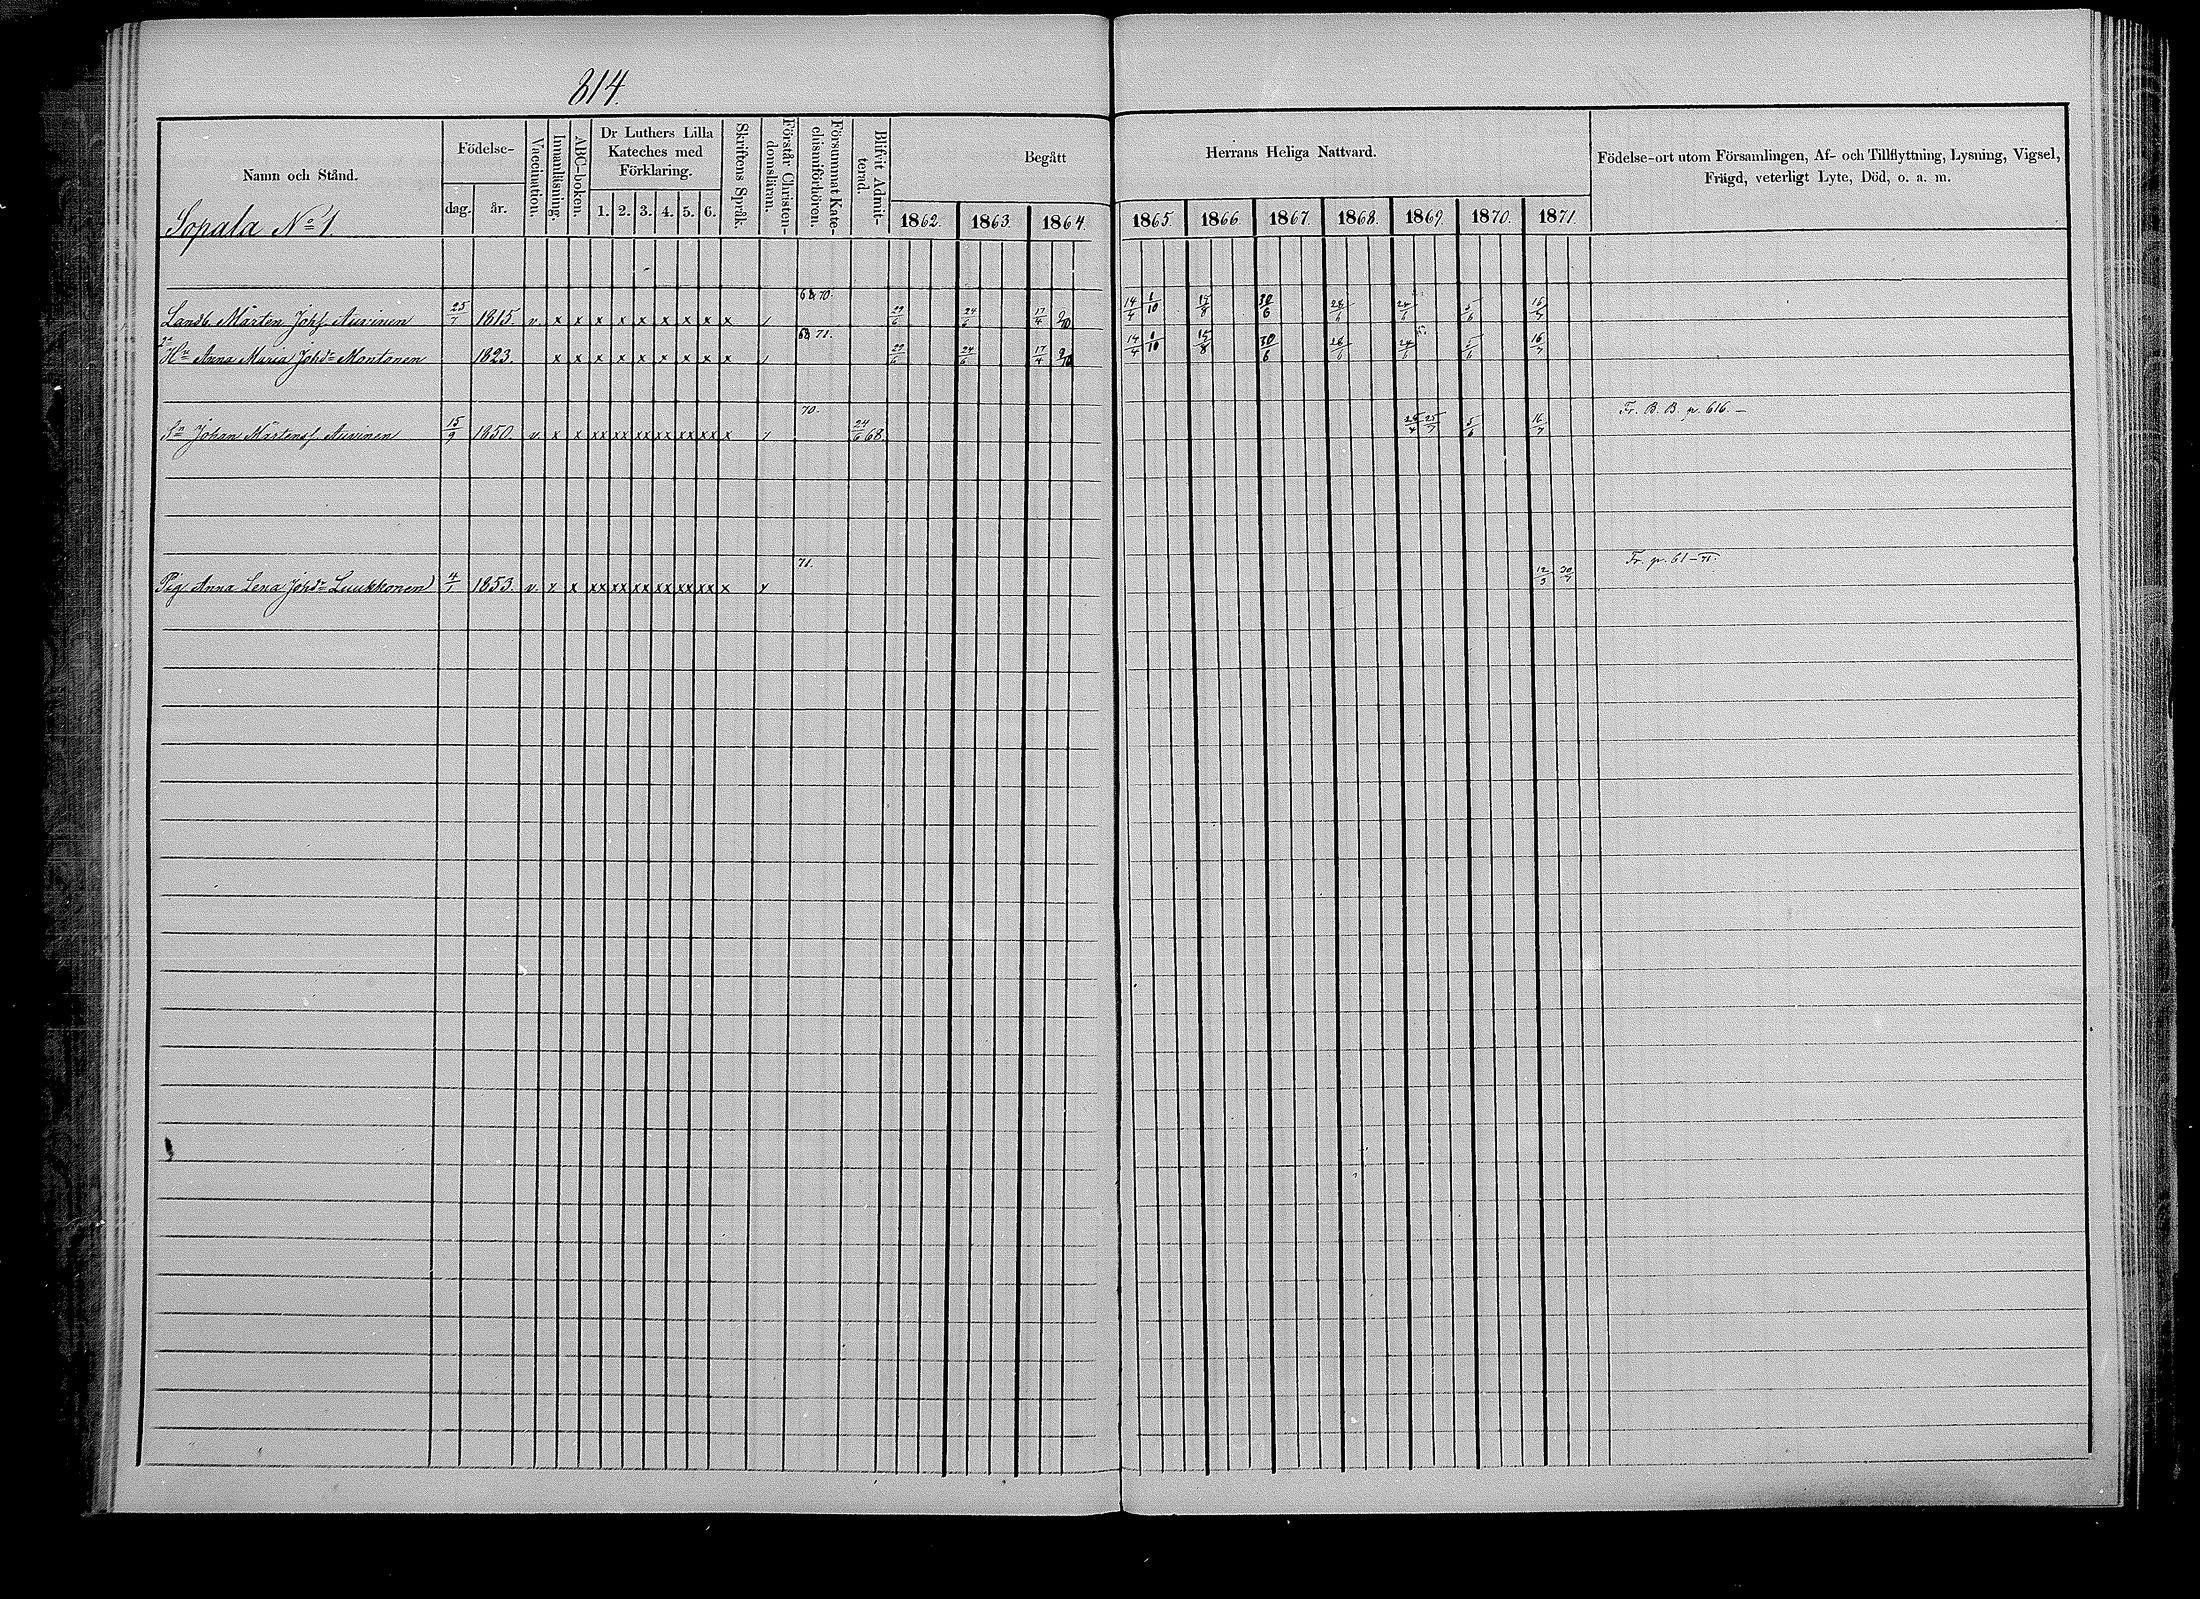 814.
Namn och Stånd. Födelse- dag. år. Vaccination. Innanläsning. ABC-boken. Dr Luthers Lilla Kateches med Förklaring. 1. 2. 3. 4. 5. 6. Skriftens Språk. Förstår Christendomsläran. Försummat Katechismiförhören. Blifvit Admitterad. Begått Herrans Heliga Nattvard. 1862. 1863. 1864. 1865. 1866. 1867. 1868. 1869. 1870. 1871. Födelse-ort utom Församlingen, Af- och Tillflyttning, Lysning, Vigsel, Frägd, veterligt Lyte, Död, o. a. m.
Sopala No 1.
Landb. Mårten Johs. Auvinen 25/7 1815. v. x x x x x x x x x 70. 29/6 24/6 17/4 14/4 1/10 30/6 5/6 16/7
2a Hu Anna Maria Johdr Montonen 1823. x x x x x x x x x 71. 29/6 24/6 17/4 14/4 1/10 30/6 5/6 16/7
Sn Johan Mårtens. Auvinen 15/9 1850. v. x x xx xx xx xx xx xx x 70. 24/6 68. 25/7 5/6 16/7 Fr. B. B. p. 616. –
Pig Anna Lena Johdr Luukkonen 4/7 1853. v. x x xx xx xx xx xx xx x 71. 12/3 30/7 Fr. p. 61 – 71.